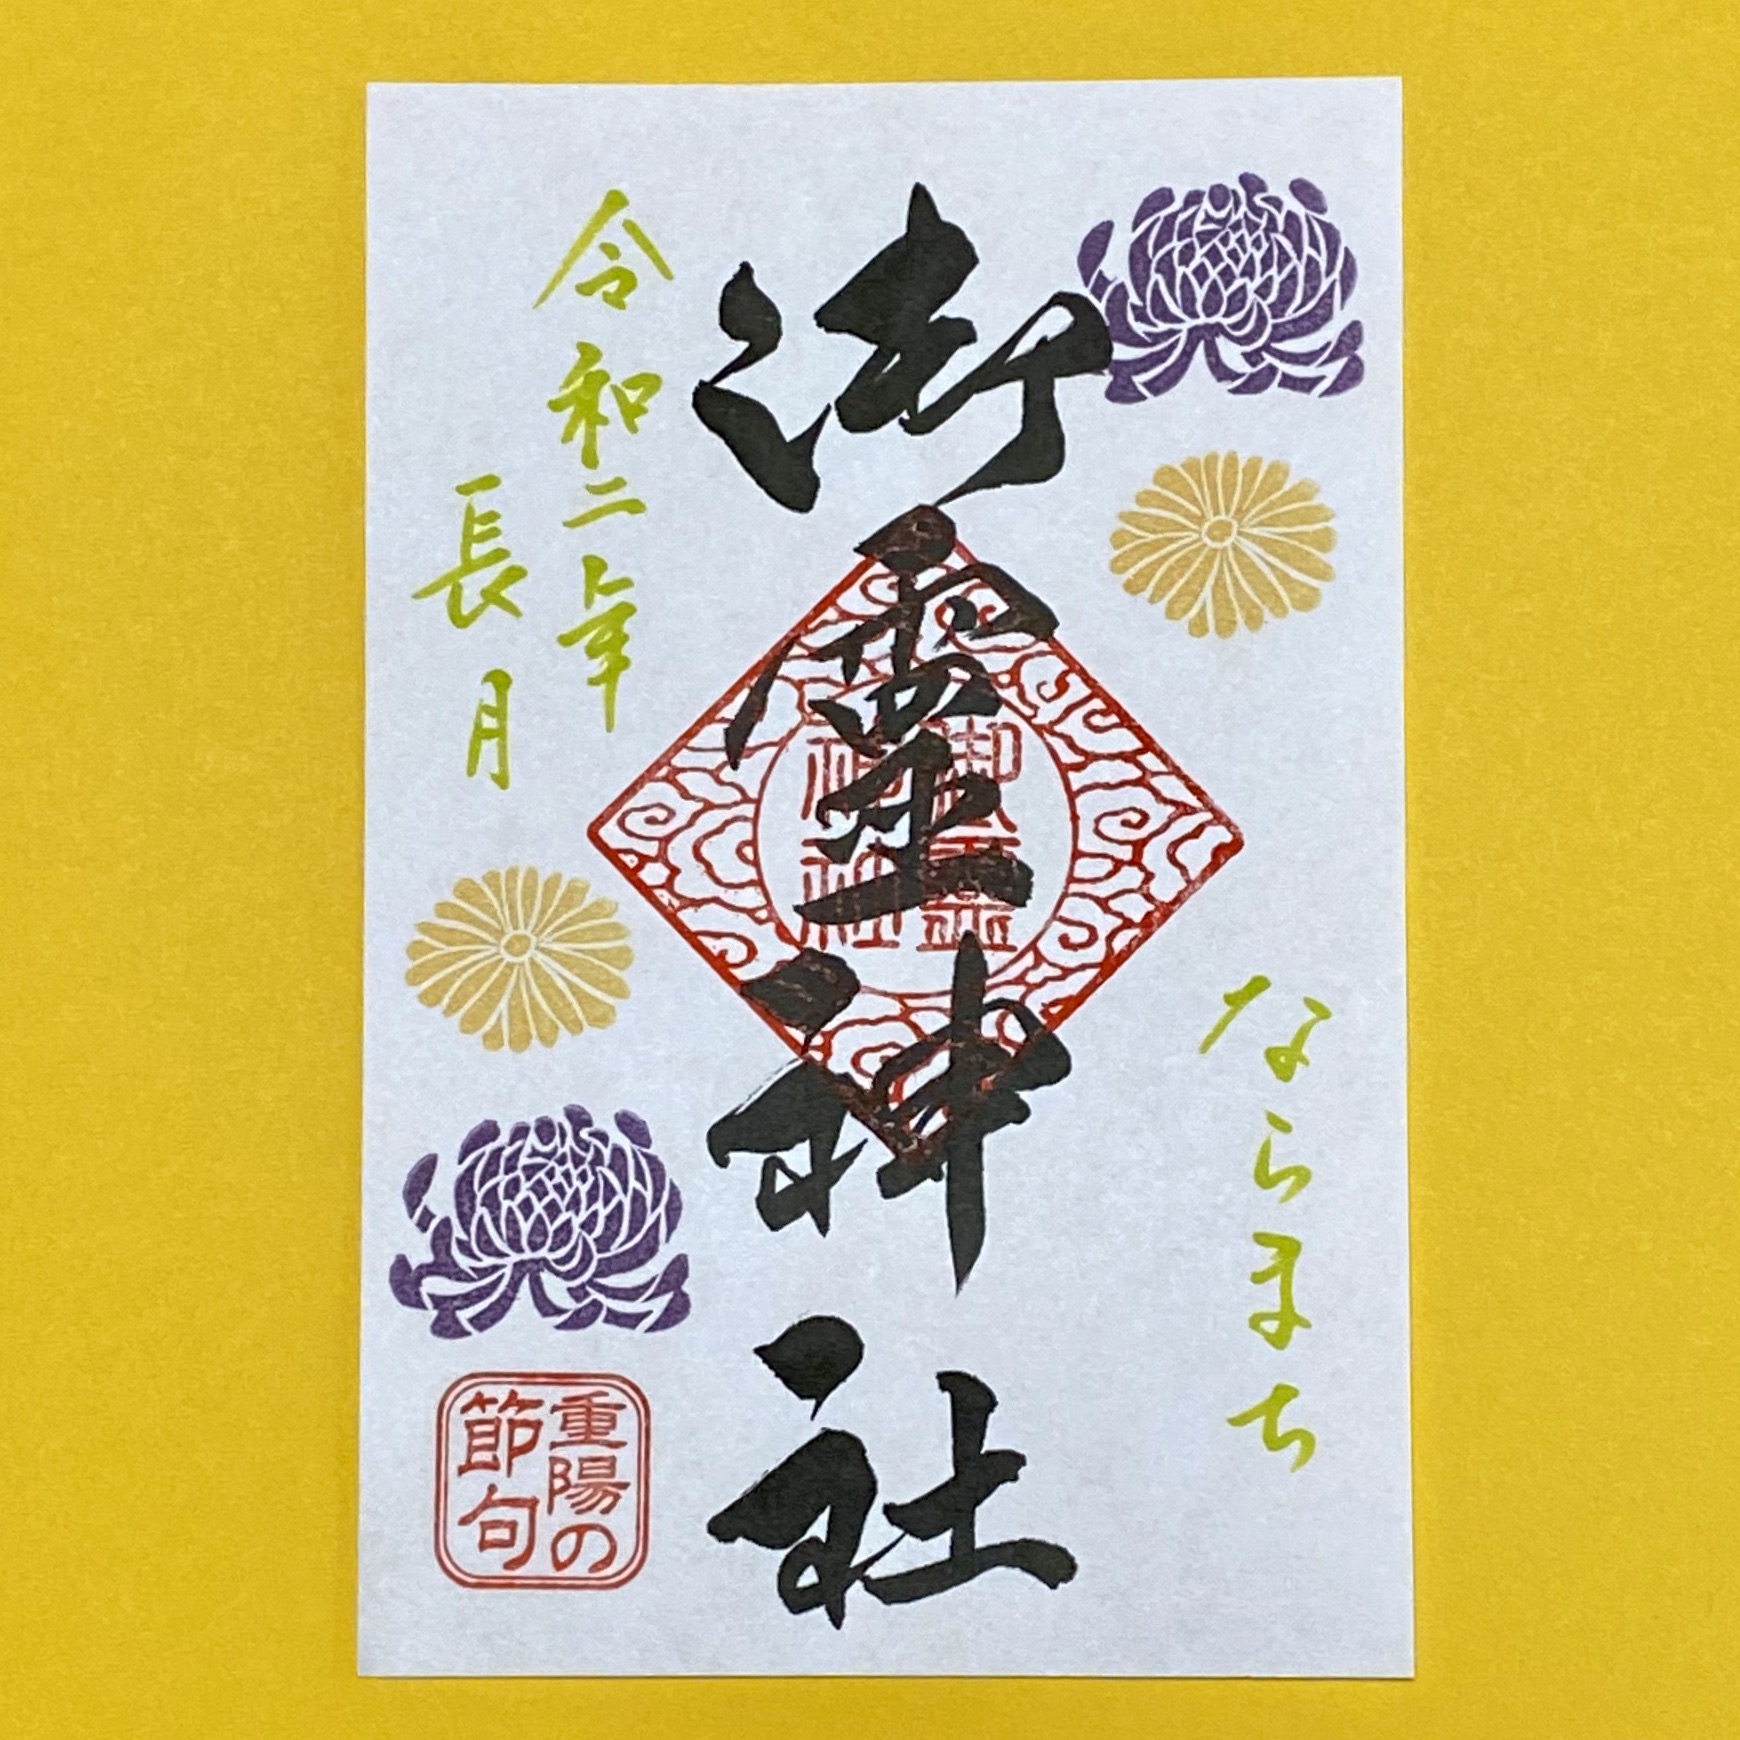 ならまち
御霊神社
御霊
神社
令和二年
長月
重陽の
節句